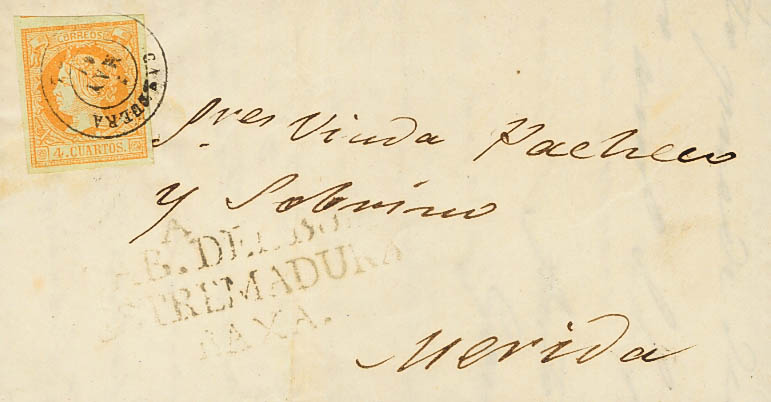 CORREOS
4. CUARTOS.
Sres Viuda Pacheco
y Sobrino
A
EXTREMADURA
BAXA.
Merida